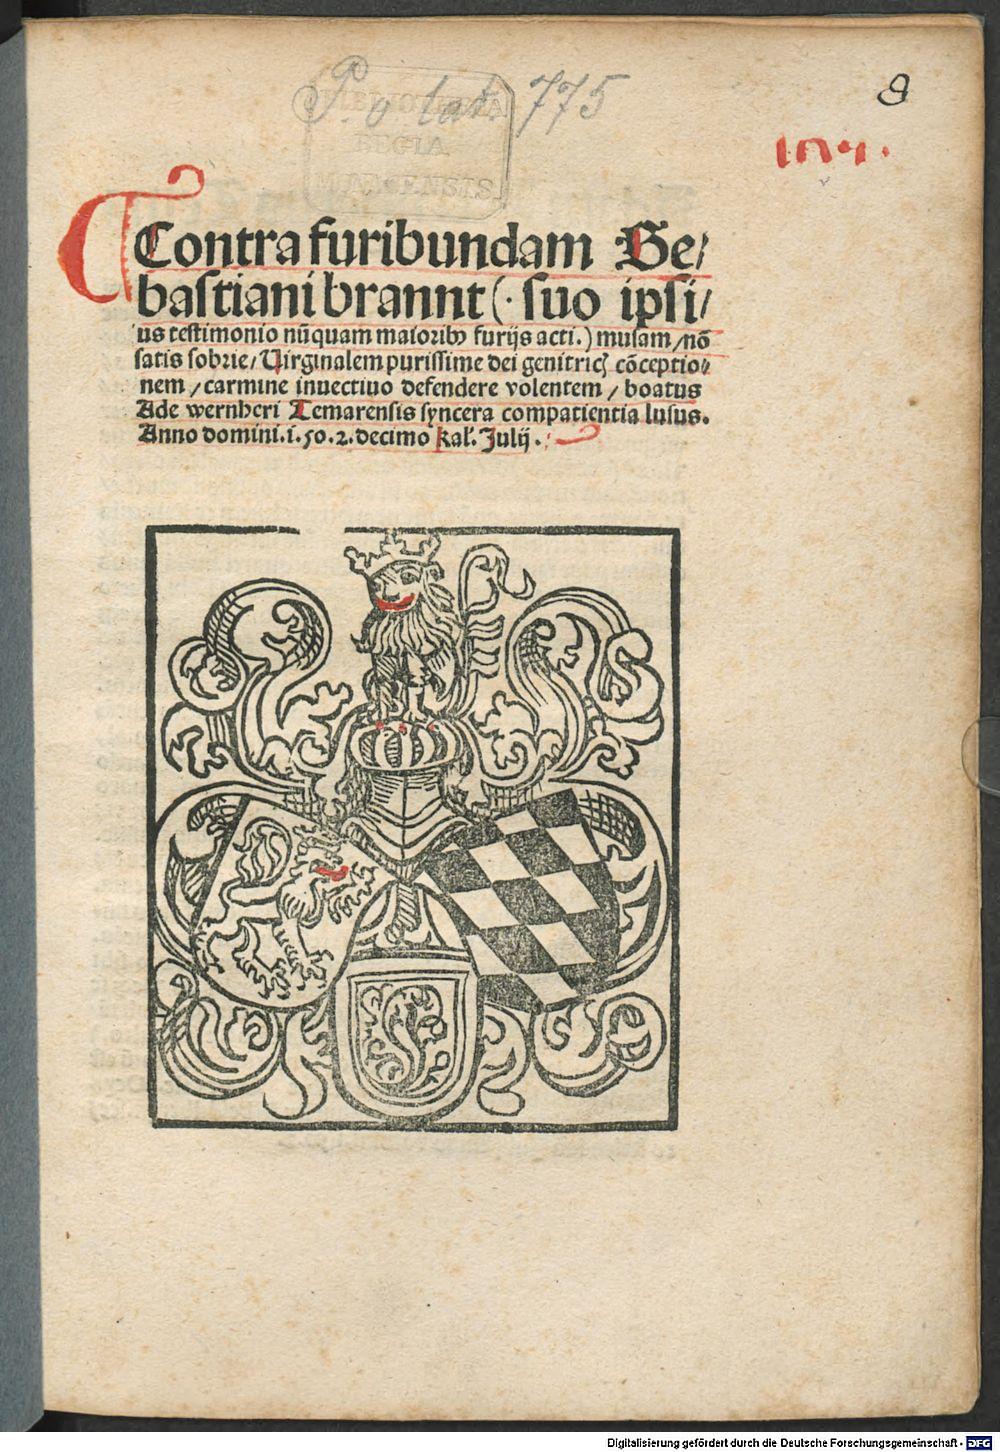 P. o lat. 775
8
BIBLIOTHECA
REGIA
MONACENSIS.
Contra furibundam Se/
bastiani brannt (· suo ipsi/
us testimonio nūquam maioribꝰ furijs acti.) musam / nō
satis sobrie / Virginalem purissime dei genitricꝭ cōceptio/
nem / carmine inuectiuo defendere volentem / boatus
Ade wernheri Temarensis syncera compatientia lusus.
Anno domini. i. 50. 2. decimo kal'. Julij .
Digitalisierung gefördert durch die Deutsche Forschungsgemeinschaft - DFG